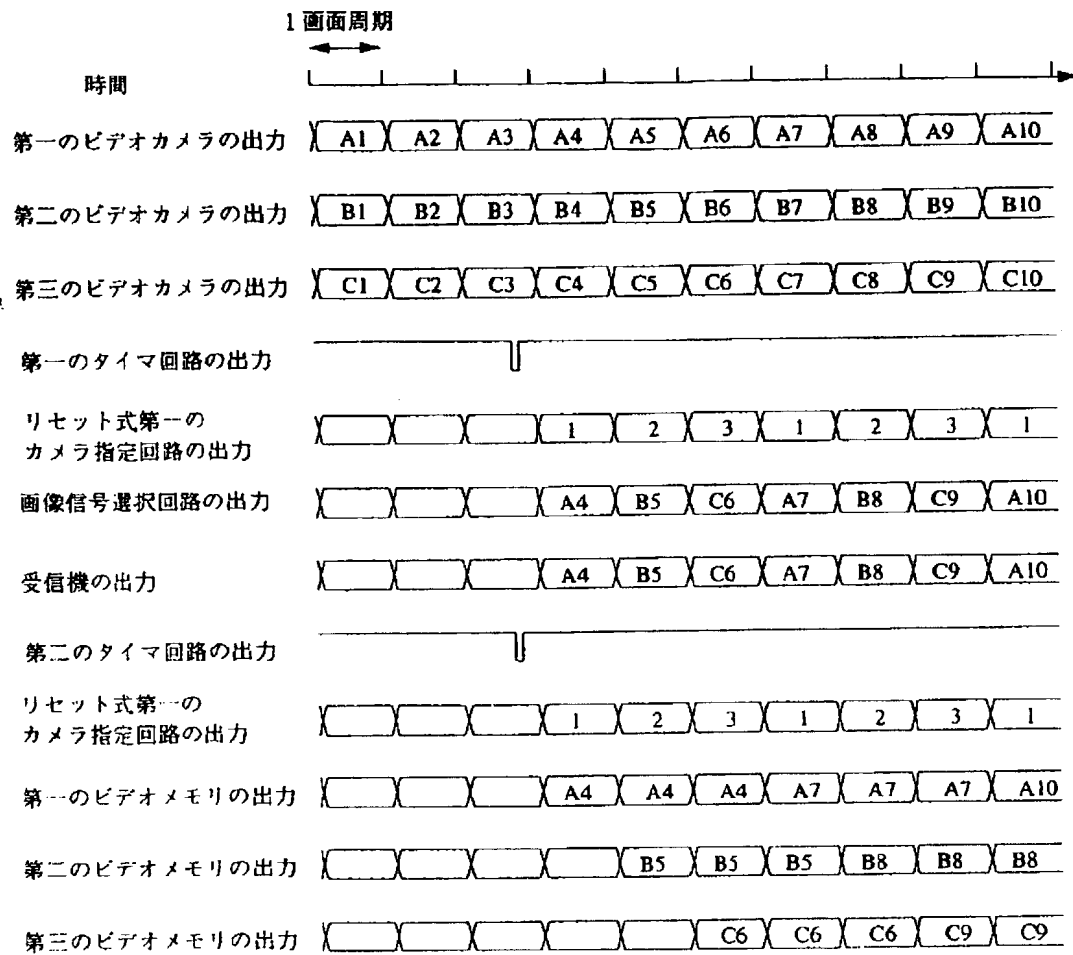 1画面周期
時間
第一のビデオカメラの出力 A1 A2 A3 A4 A5 A6 A7 A8 A9 A10
第二のビデオカメラの出力 B1 B2 B3 B4 B5 B6 B7 B8 B9 B10
第三のビデオカメラの出力 C1 C2 C3 C4 C5 C6 C7 C8 C9 C10
第一のタイマ回路の出力
リセット式第一の
カメラ指定回路の出力 1 2 3 1 2 3 1
画像信号選択回路の出力 A4 B5 C6 A7 B8 C9 A10
受信機の出力 A4 B5 C6 A7 B8 C9 A10
第二のタイマ回路の出力
リセット式第一の
カメラ指定回路の出力 1 2 3 1 2 3 1
第一のビデオメモリの出力 A4 A4 A4 A7 A7 A7 A10
第二のビデオメモリの出力 B5 B5 B5 B8 B8 B8
第三のビデオメモリの出力 C6 C6 C6 C9 C9